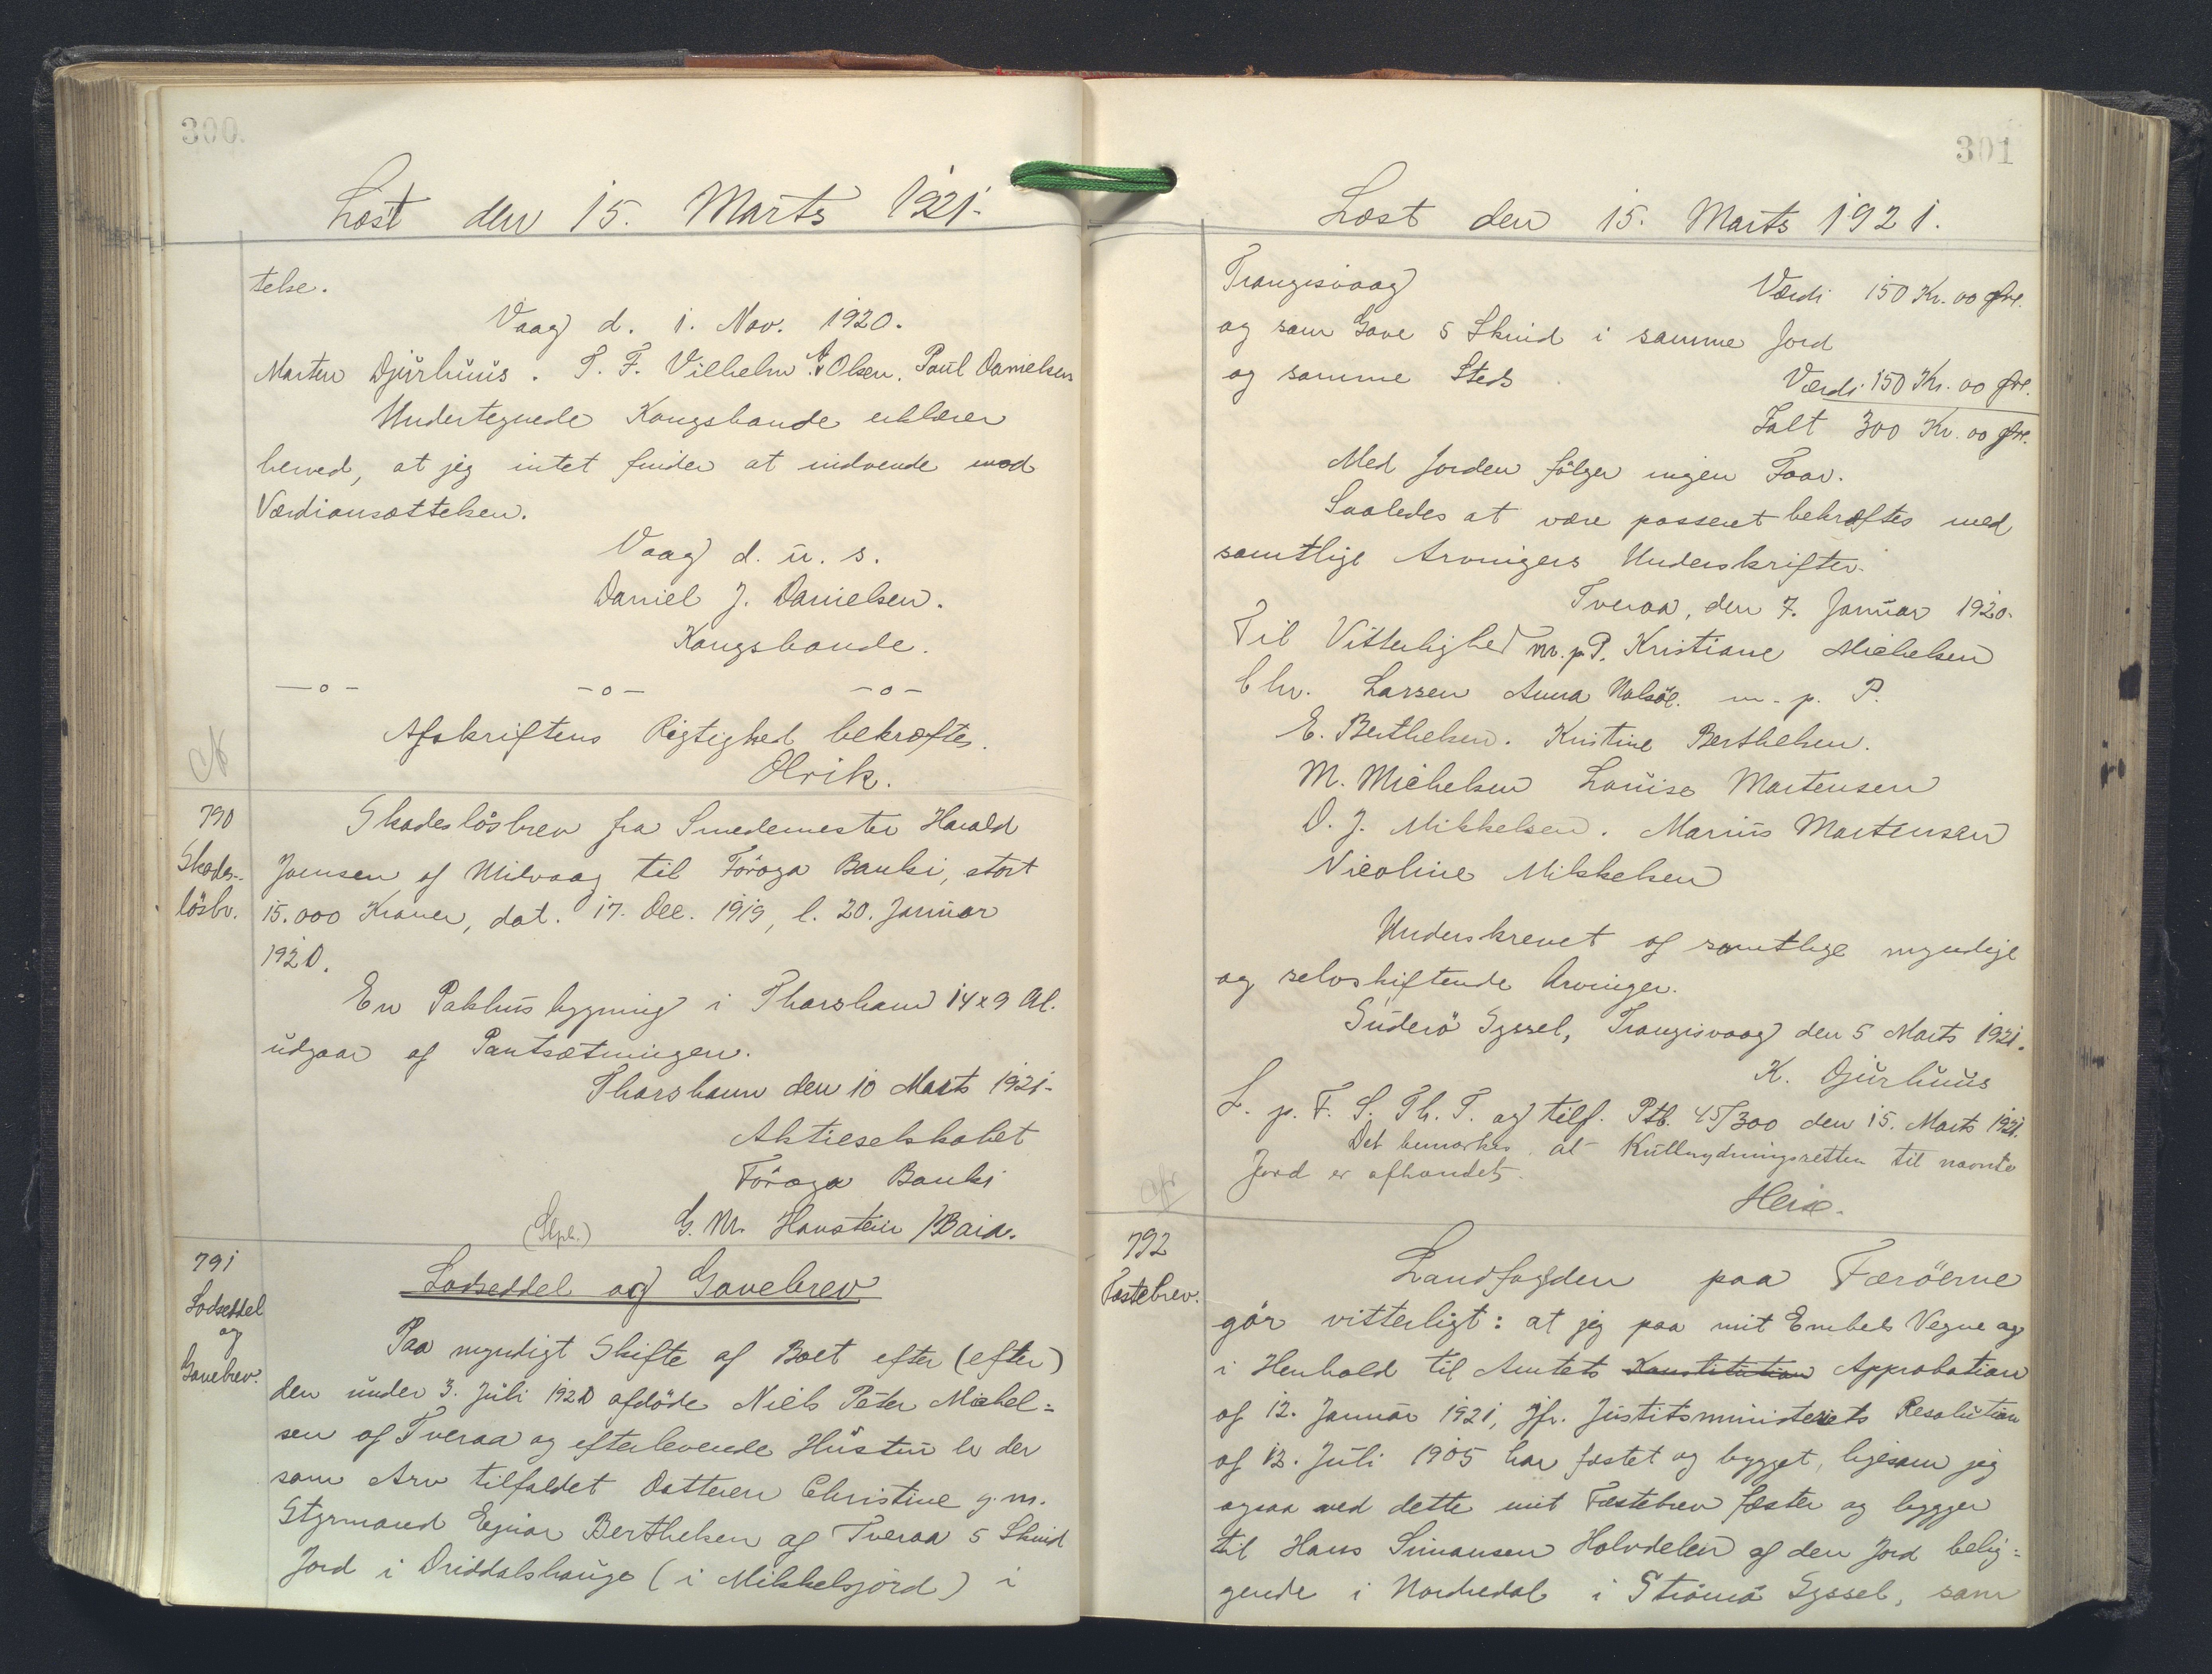 300.
Læst den 15. Marts 1921.
telse.
Vaag d. 1. Nov. 1920.
Morten Djurhuus. T. F. Vilhelm A. Olsen. Paul Danielsen
Undertegnede Kongsbonde erklærer
herved, at jeg intet finder at indvende mod
Værdiansættelsen.
Vaag d. u. s.
Daniel J. Danielsen.
Kongsbonde.
—o— —o— —o—
Afskriftens Rigtighed bekræftes.
Olrik.
790
Skades-
lösbr.
Skadeslösbrev fra Smedemester Harald
Joensen af Midvaag til Föroya Banki, stort
15.000 Kroner, dat. 17. Dec. 1919, l. 20. Januar
1920.
En Pakhusbygning i Thorshavn 14 x 9 Al.
udgaar af Pantsætningen.
Thorshavn den 10 Marts 1921.
Aktieselskabet
Föroya Banki
(Stpl.) G. M. Hanstein / Baia.
791
Lodseddel
og
Gavebrev.
Lodseddel og Gavebrev
Paa myndigt Skifte af Boet efter (efter)
den under 3. Juli 1920 afdöde Niels Peter Michel=
sen af Tveraa og efterlevende Hustru er der
som Arv tilfaldet Datteren Christine g. m.
Styrmand Ejnar Berthelsen af Tveraa 5 Skind
Jord i Öriddalshauge (i Mikkelsjörd) i
301
Læst den 15. Marts 1921.
Trangisvaag Værdi 150 Kr. 00 Øre.
og som Gave 5 Skind i samme Jord
og samme Sted Værdi 150 Kr. 00 Øre.
Ialt 300 Kr. 00 Øre.
Med Jorden fölger ingen Faar.
Saaledes at være passeret bekræftes med
samtlige Arvingers Underskrifter.
Tveraa, den 7. Januar 1920.
Til Vitterlighed m. p. P. Kristiane Michelsen
Chr. Larsen Anna Nolsöe. m. p. P.
E. Berthelsen. Kristine Berthelsen.
M. Michelsen Louise Mortensen
D. J. Mikkelsen. Marius Mortensen
Nicoline Mikkelsen
Underskrevet af samtlige myndige
og selvskiftende Arvinger.
Suderö Syssel, Trangisvaag den 5 Marts 1921.
K. Djurhuus
L. p. F. S. Th. T. og tilf. Ptb. 45/300 den 15. Marts 1921.
Det bemærkes, at Kulbrydningsretten til nævnte
Jord er afhændet.
Heie.
792
Fæstebrev.
Landfogden paa Færöerne
gör vitterligt: at jeg paa mit Embeds Vegne og
i Henhold til Amtets Konstitution Approbation
af 12. Januar 1921, jfr. Justitsministeriets Resolution
af 12. Juli 1905 har fæstet og bygget, ligesom jeg
ogsaa ved dette mit Fæstebrev fæster og bygger
til Hans Simonsen Halvdelen af den Jord belig=
gende i Nordredal i Strömö Syssel, som